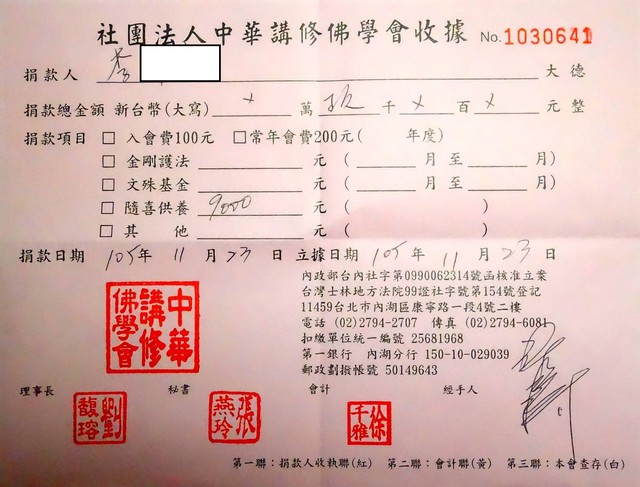 社團法人中華講修佛學會收據 No.1030641
捐款人 李 大德
捐款總金額 新台幣(大寫) × 萬 玖 千 × 百 × 元整
捐款項目 □ 入會費100元 □常年會費200元( 年度)
□ 金剛護法 元 ( 月 至 月)
□ 文殊基金 元 ( 月 至 月)
□ 隨喜供養 9000 元 ( )
□ 其 他 元 ( )
捐款日期 105年 11 月 23 日 立據日期 105 年 11 月 23 日
內政部台內社字第0990062314號函核准立案
台灣士林地方法院99證社字號第154號登記
11459台北市內湖區康寧路一段4號二樓
電話 (02)2794-2707 傳真 (02)2794-6081
扣繳單位統一編號 25681968
第一銀行 內湖分行 150-10-029039
郵政劃撥帳號 50149643
中華講修佛學會
理事長 秘書 會計 經手人
劉馥瑢 張燕玲 徐千雅
第一聯：捐款人收執聯(紅) 第二聯：會計聯(黃) 第三聯：本會查存(白)